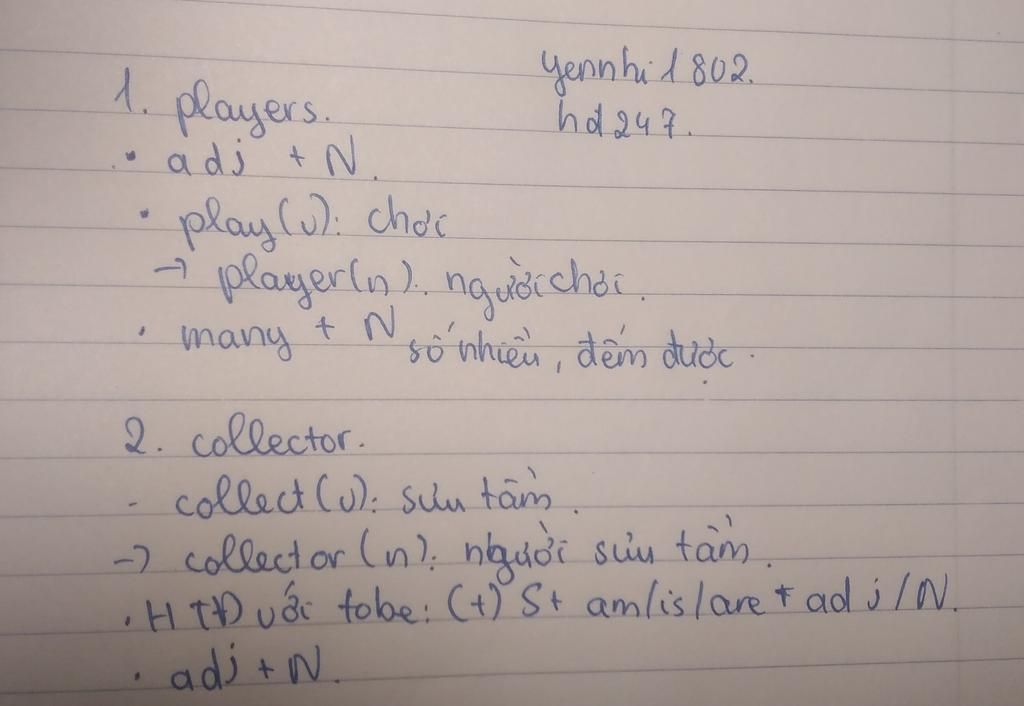 yennhi1802.
hd247.
1. players.
• adj + N.
• play(v): chơi
→ player(n): người chơi.
• many + N số nhiều, đếm được.
2. collector.
- collect(v): sưu tầm.
→ collector(n): người sưu tầm.
• HTĐ với tobe: (+) S + am/is/are + adj/N.
• adj + N.